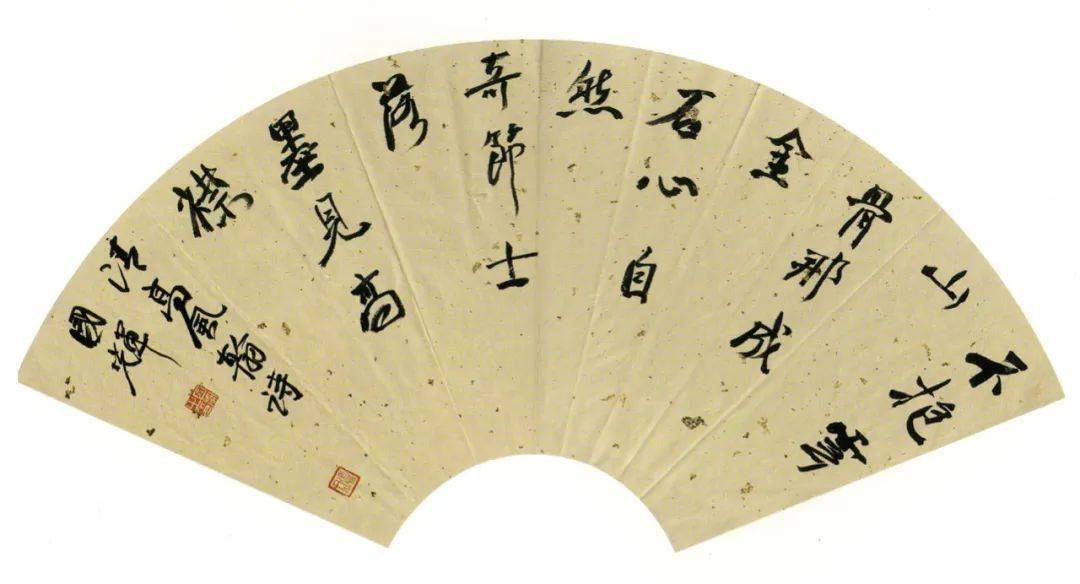 不抱雲
山
骨那成
金
石心自
然
奇節士
落
墨見高
襟
清高鳳翰詩
國輝